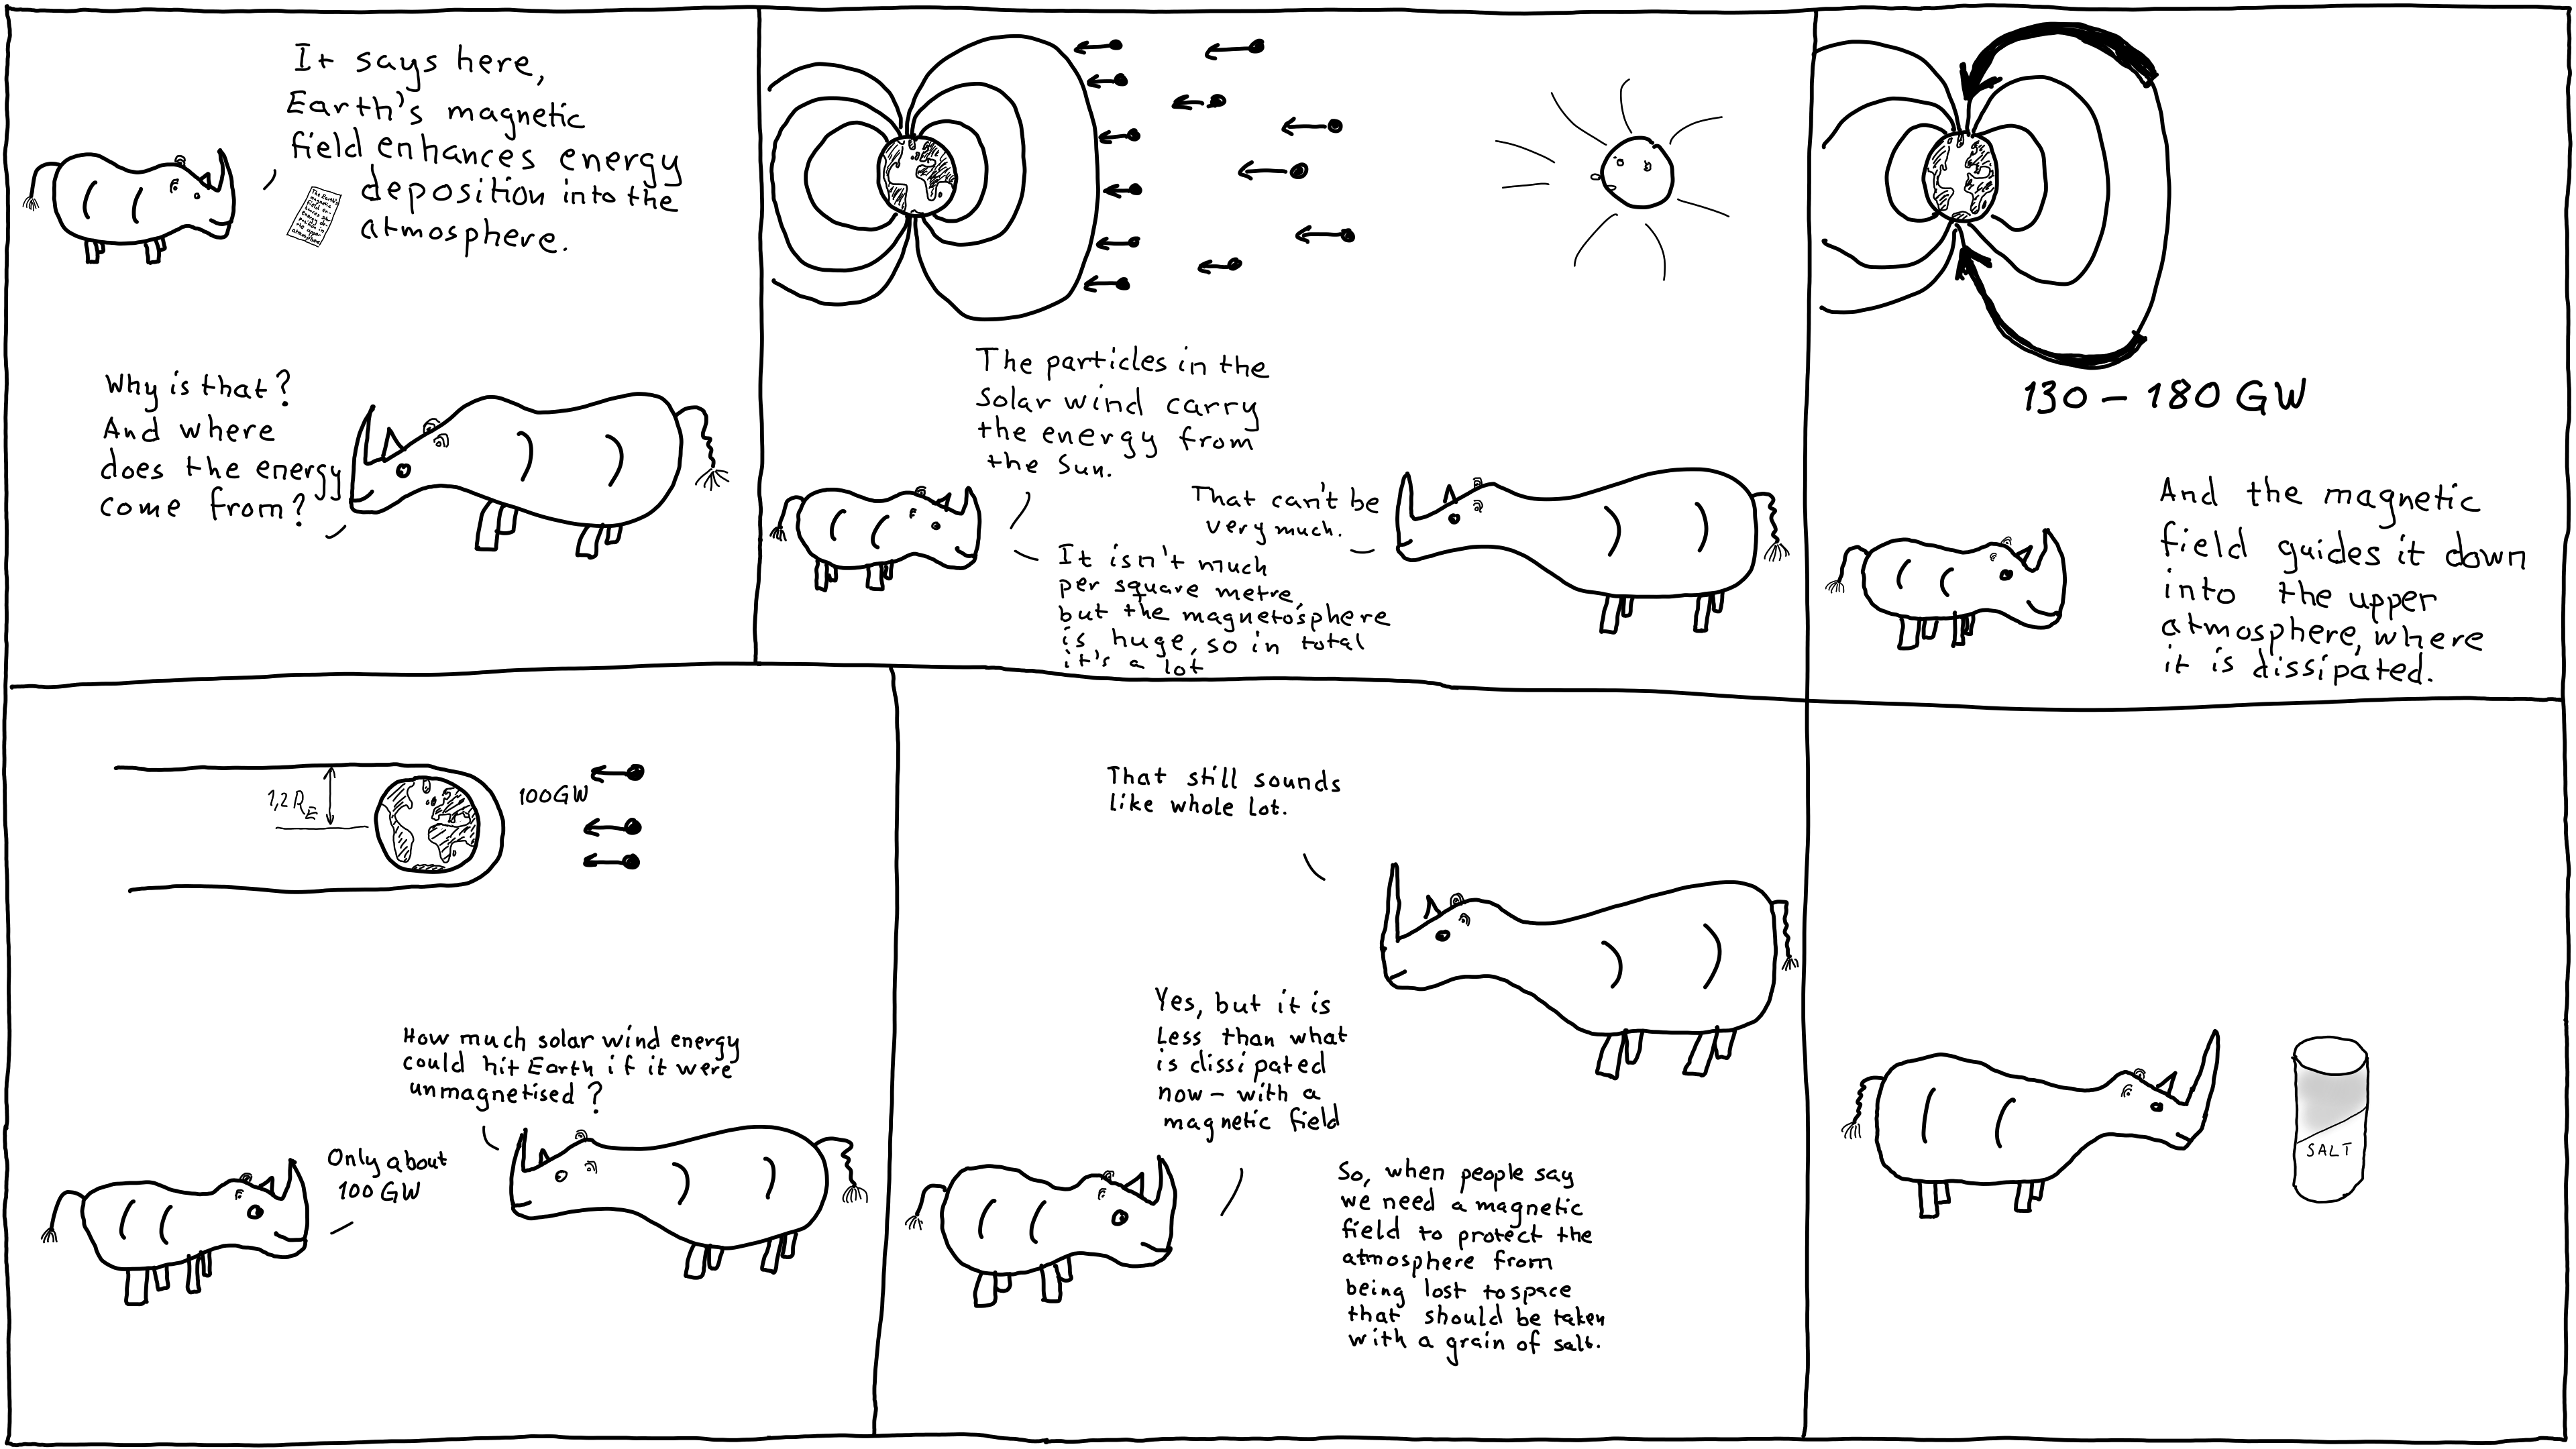 It says here,
Earth's magnetic
field enhances energy
deposition into the
atmosphere.
Why is that?
And where
does the energy
come from?
The particles in the
solar wind carry
the energy from
the Sun.
That can't be
very much.
It isn't much
per square metre,
but the magnetosphere
is huge, so in total
it's a lot
130 – 180 GW
And the magnetic
field guides it down
into the upper
atmosphere, where
it is dissipated.
1,2 RE
100GW
How much solar wind energy
could hit Earth if it were
unmagnetised?
Only about
100 GW
That still sounds
like whole lot.
Yes, but it is
Less than what
is dissipated
now – with a
magnetic field
So, when people say
we need a magnetic
field to protect the
atmosphere from
being lost to space
that should be taken
with a grain of salt.
SALT